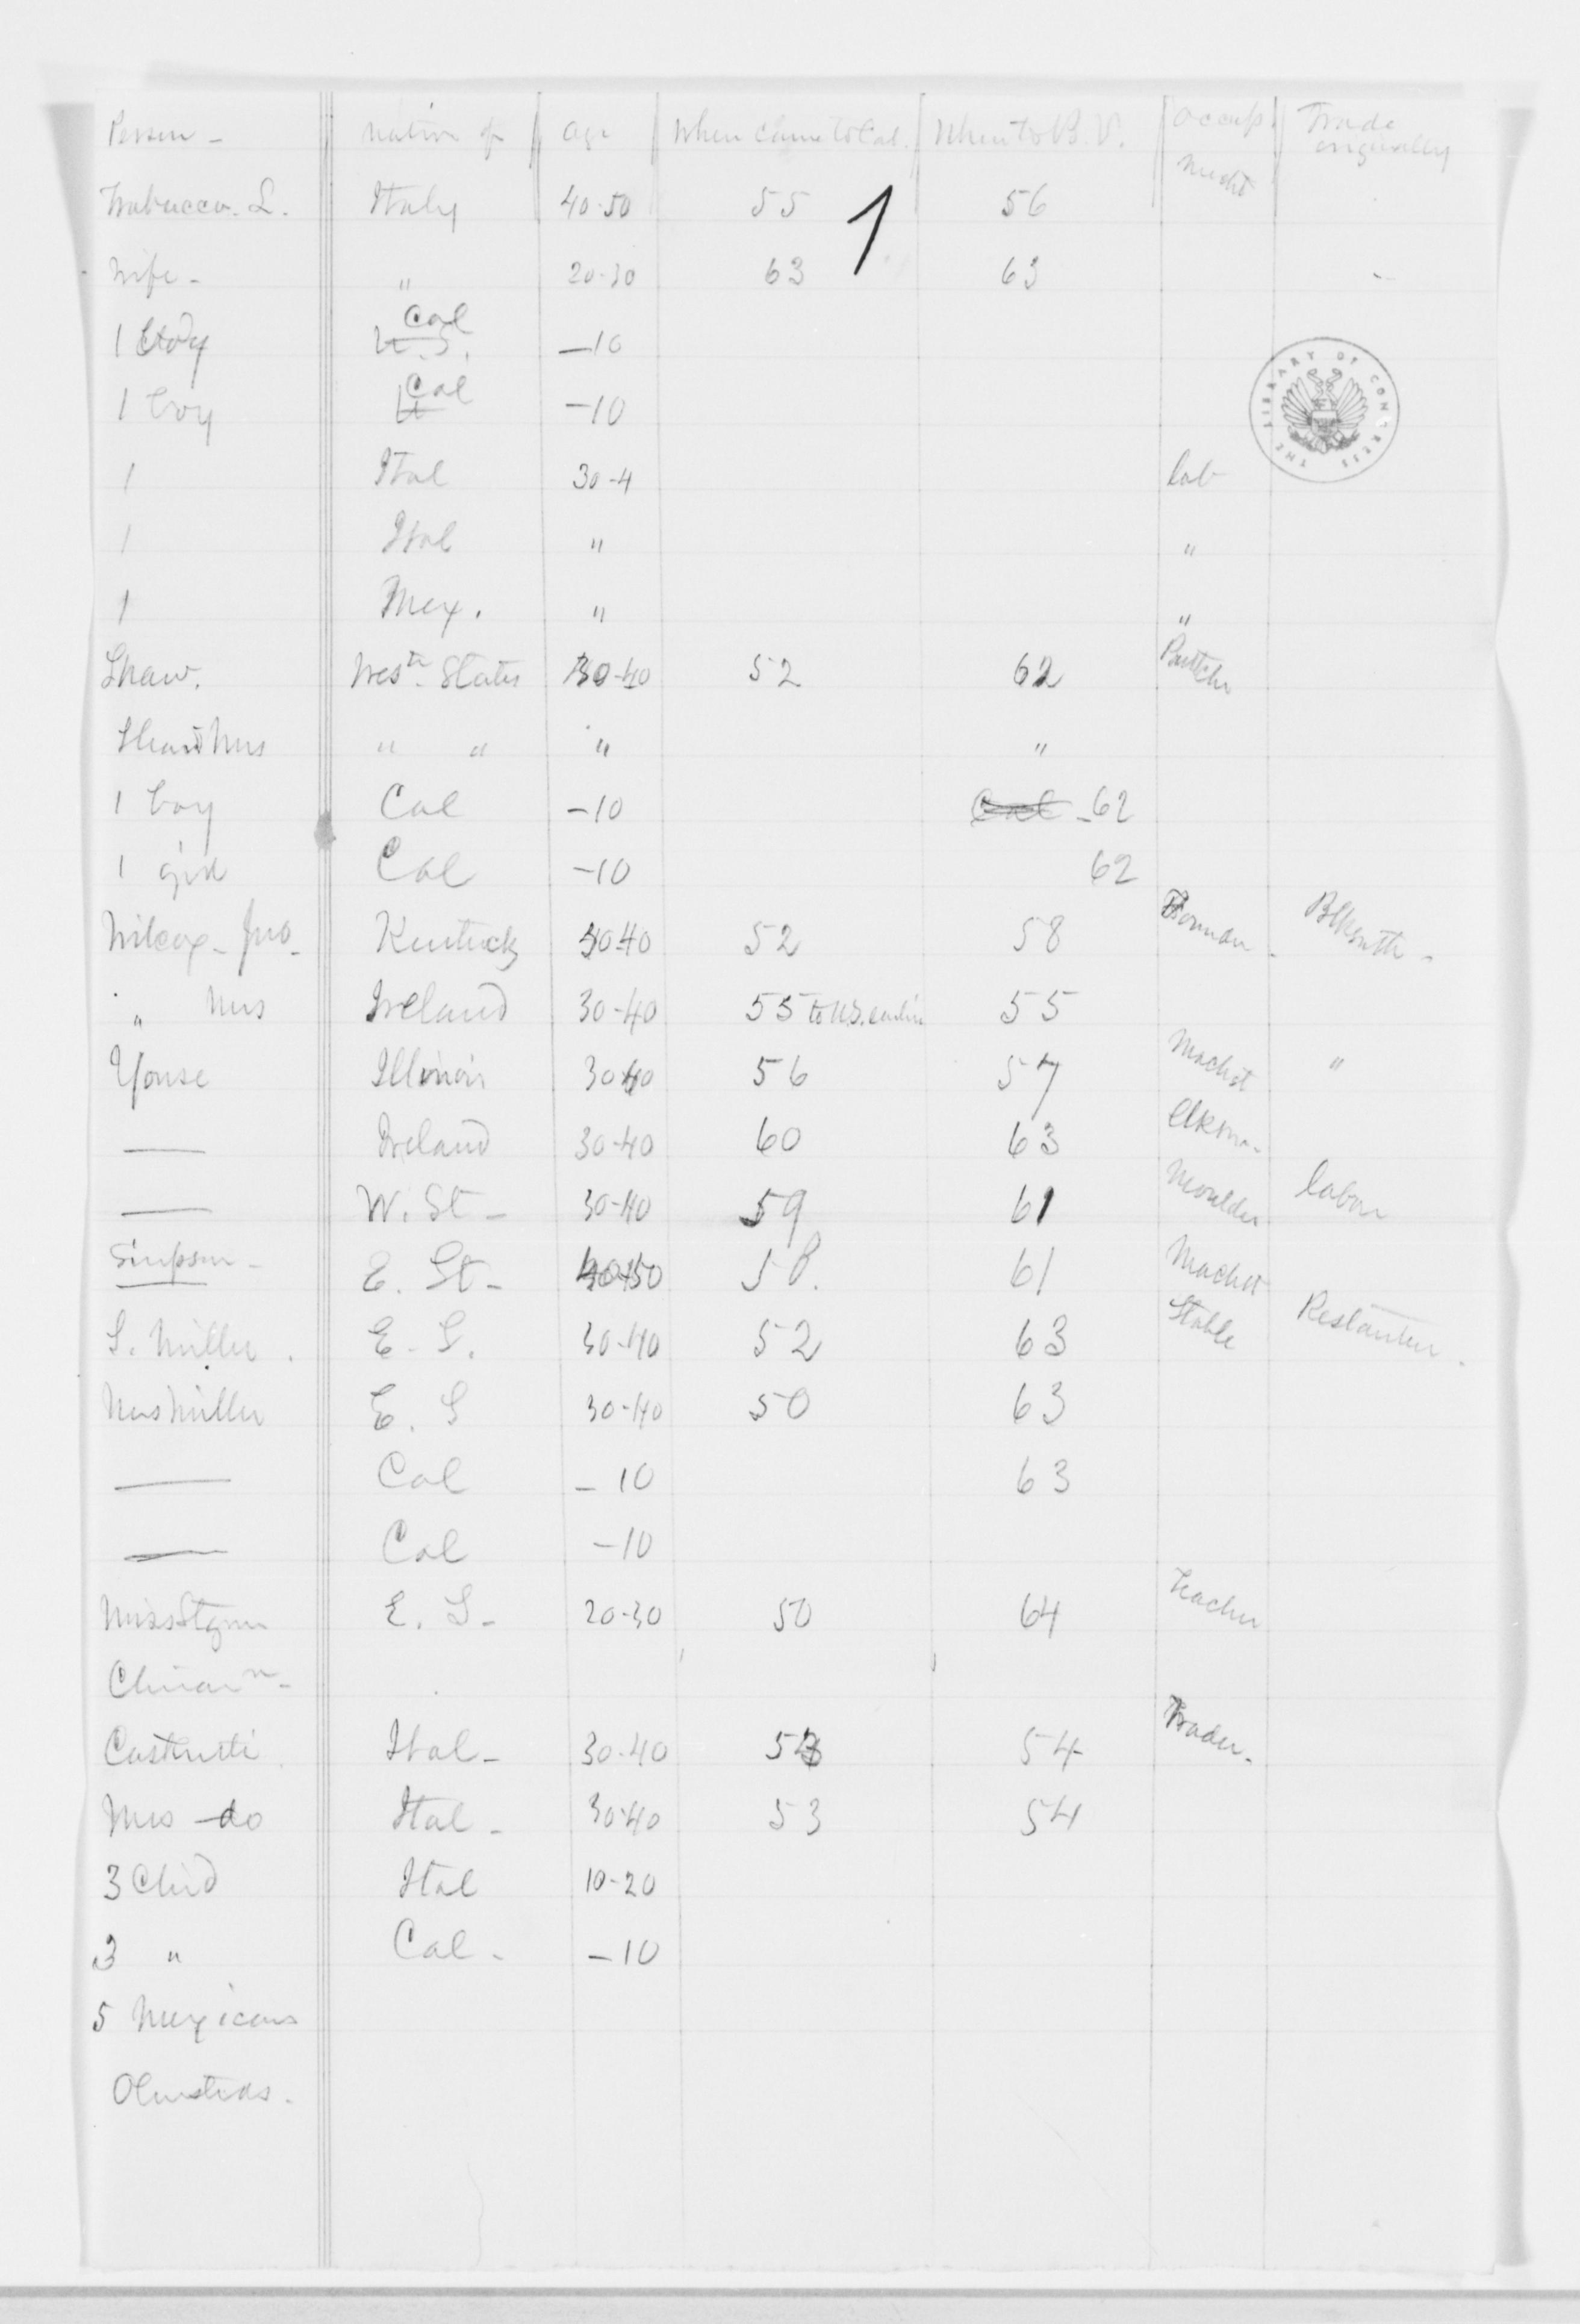 Person - Native of Age When came to Cal. When to B. V. Occup. Trade originally
Trabucco. L. Italy 40-50 55 56 Mercht
1
Wife - " 20-30 63 63 -
1 boy U.S. Cal -10
1 boy Cal -10
1 Ital 30-4 Lab
1 Ital " "
1 Mex. " "
Shaw. Westn States 30-40 52 62 Butchr
Shaw Mrs " " " "
1 boy Cal -10 Cal - 62
1 girl Cal -10 62
Wilcox - Jno - Kentucky 30-40 52 58 Forman - Blksmth -
" Mrs Ireland 30-40 55 to U.S. earlier 55
Youse Illinois 30-40 56 57 Machst "
— Ireland 30-40 60 63
— W. St - 30-40 59 61 Moulder labor
Simpson - E. St - 40-50 58. 61 Machst
S. Miller. E. S. 30-40 52 63 Stable
Mrs Miller E. S 30-40 50 63
— Cal -10 63
— Cal -10
Miss E. S - 20-30 50 64 Teacher
Chinamn -
Ital - 30-40 53 54 Trader -
Mrs - do Ital - 30-40 53 54
3 Child Ital 10-20
3 " Cal - -10
5 Mexicans
Olmsteds.
THE LIBRARY OF CONGRESS